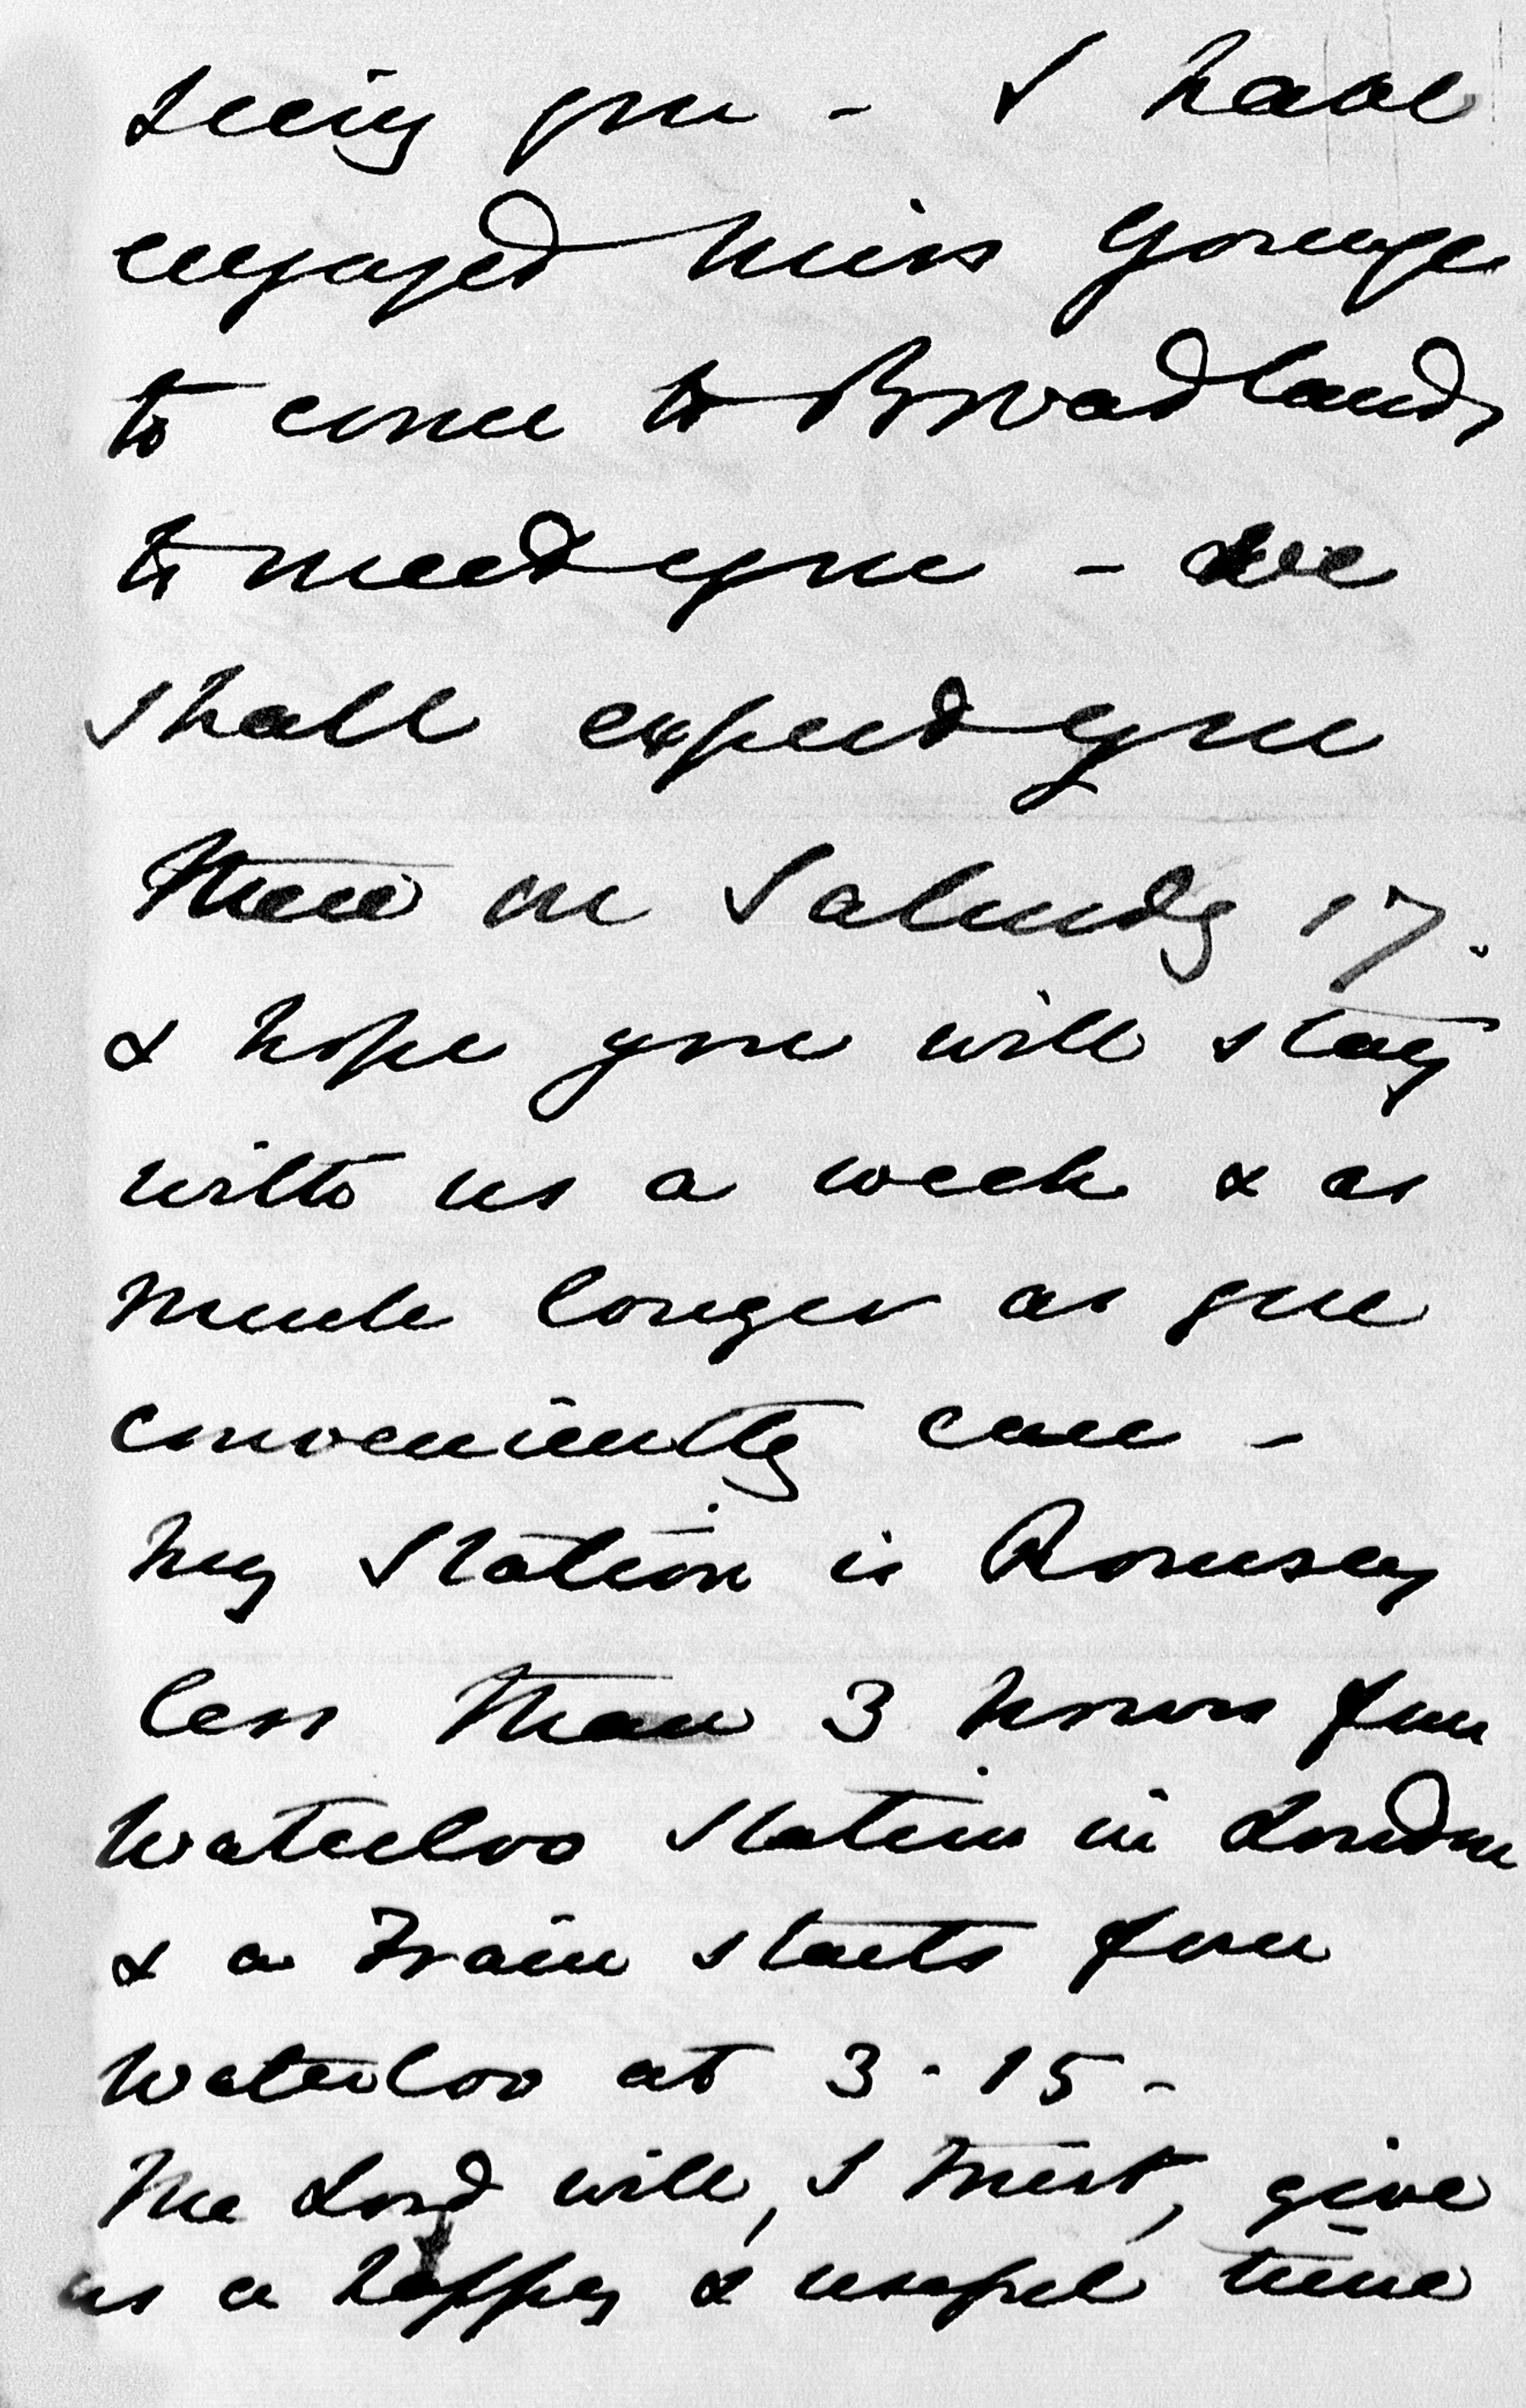 seeing you - I have
engaged Miss Yonge
to come to Broadlands
to meet you - We
shall expect you
there on Saturdy 17.
& hope you will stay
with us a week & as
much longer as you
conveniently can -
My Station is Romsey
less than 3 hours from
Waterloo Station in London
& a Train starts from
Waterloo at 3.15 -
The Lord will, I trust, give
us a happy & useful time